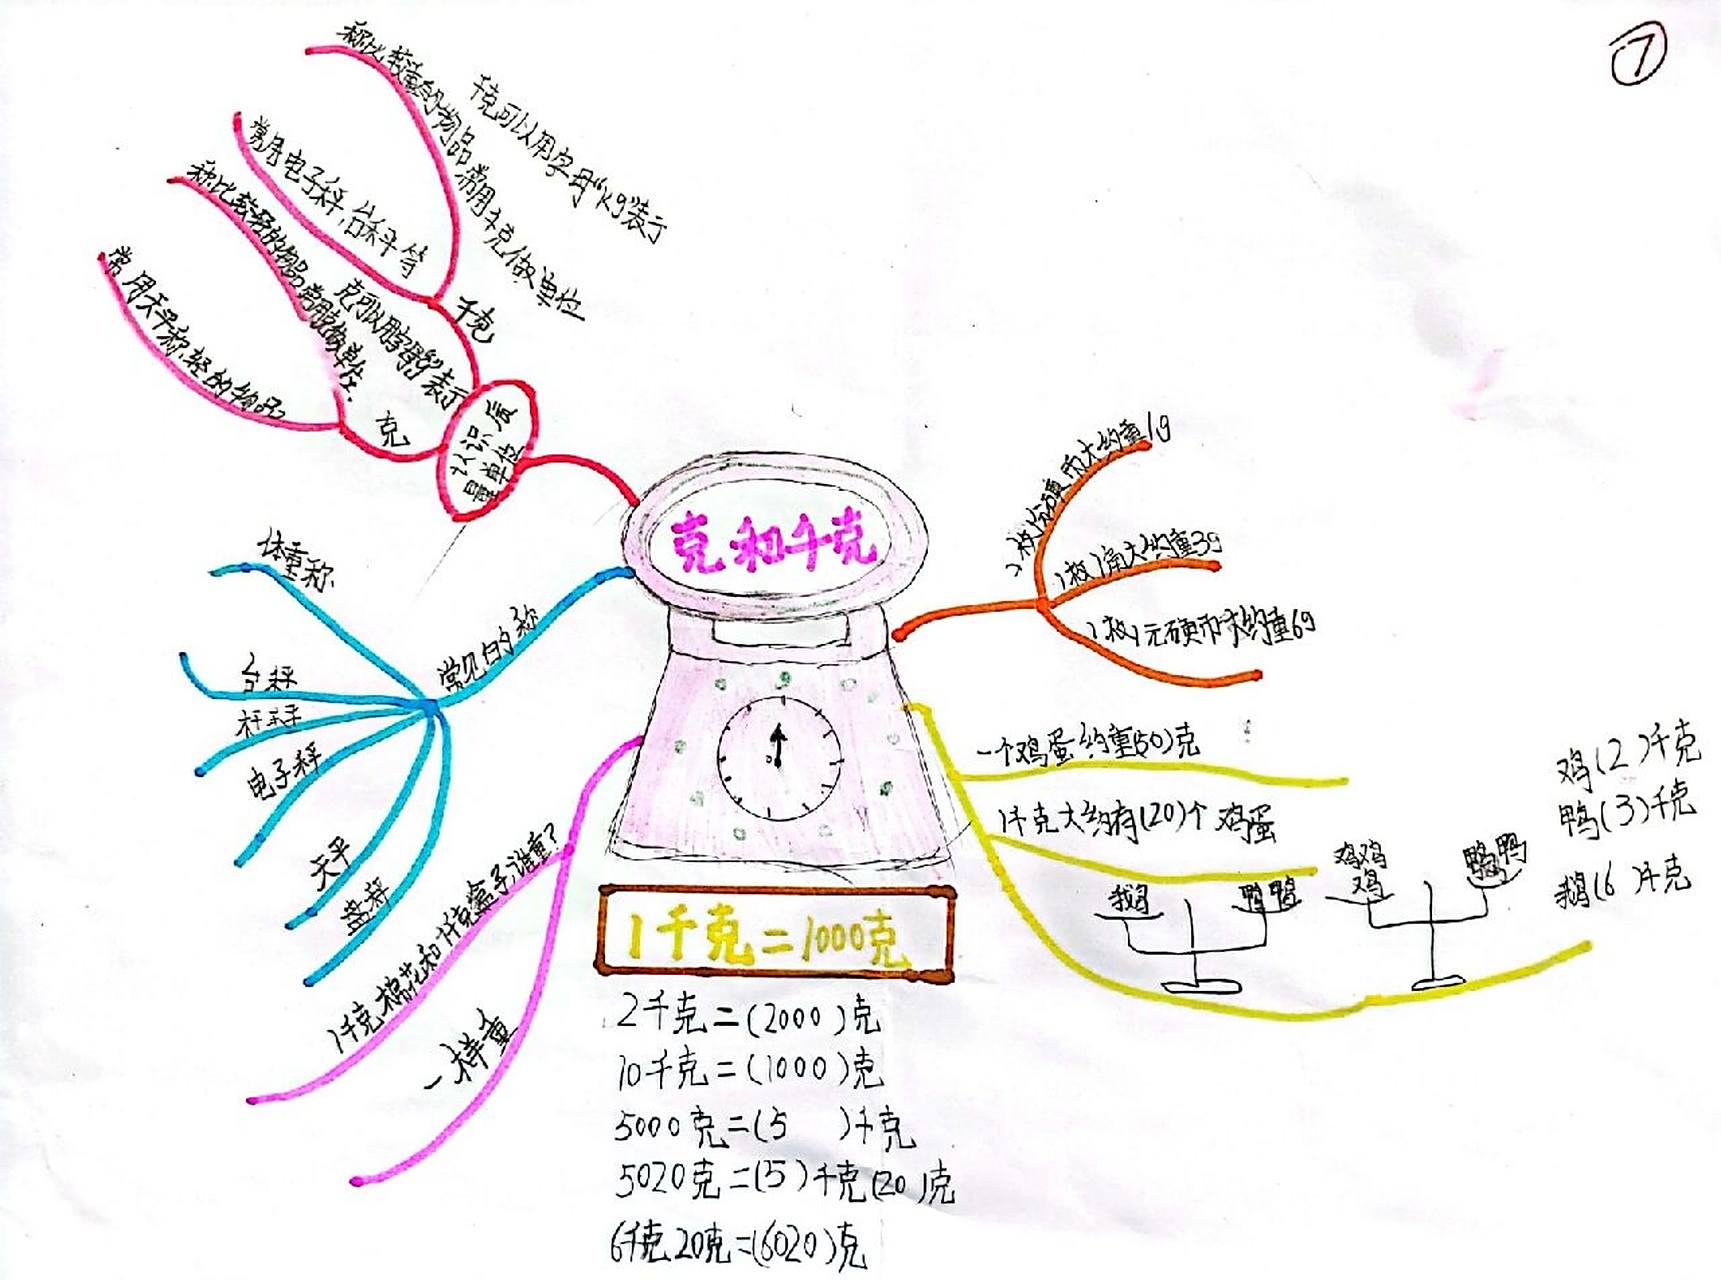 ⑦
称比较重的物品常用千克做单位
千克可以用字母“kg”表示
常用电子秤,台秤等
千克
称比较轻的物品常用克做单位.
克可以用字母“g”表示
常用天平称轻的物品
克
认识质量单位
克和千克
常见的称
体重称
台秤
杆秤
电子秤
天平
盘秤
1千克棉花和1千克盒子,谁重?
一样重
1枚1分硬币大约重1g
1枚1角大约重3g
1枚1元硬币大约重6g
一个鸡蛋约重(50)克
1千克大约有(20)个鸡蛋
鹅
鸭鸭
鸡鸡
鸡
鸭鸭
鸡(2)千克
鸭(3)千克
鹅(6)千克
1千克=1000克
2千克=(2000)克
10千克=(1000)克
5000克=(5 )千克
5020克=(5)千克(20)克
6千克20克=(6020)克